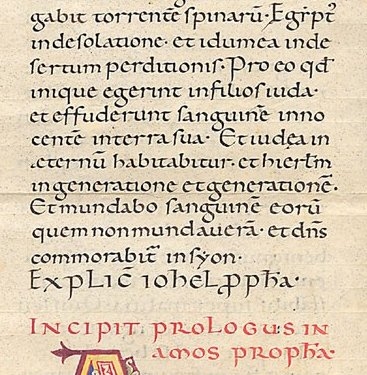 gabit torrentē spinarū. Egipt͛
in desolatione. et idumea in de
sertum perditionis. Pro eo qđ
inique egerint in filios iuda.
et effuderunt sanguinē inno
centē in terra sua. Et iudea in
æternū habitabitur. et hierl̄m
in generatione et generationē.
Et mundabo sanguinē eorū
quem non mundauerā. et dn̄s
commorabit̄ in syon.
EXPLIC̄ IOHEL ꝓpħa.
INCIPIT PROLOGUS IN
AMOS PROPħA.